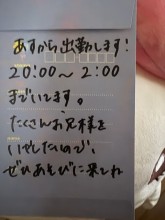 あすから出勤します!
20:00～2:00
までいてます。
たくさんお兄様を
いやしたいので、
ぜひあそびに来てね